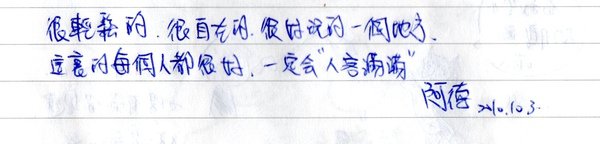 很輕鬆的、很自在的、很好玩的一個地方、
這裏的每個人都很好，一定会“人客滿滿”
阿德 2010.10.3.